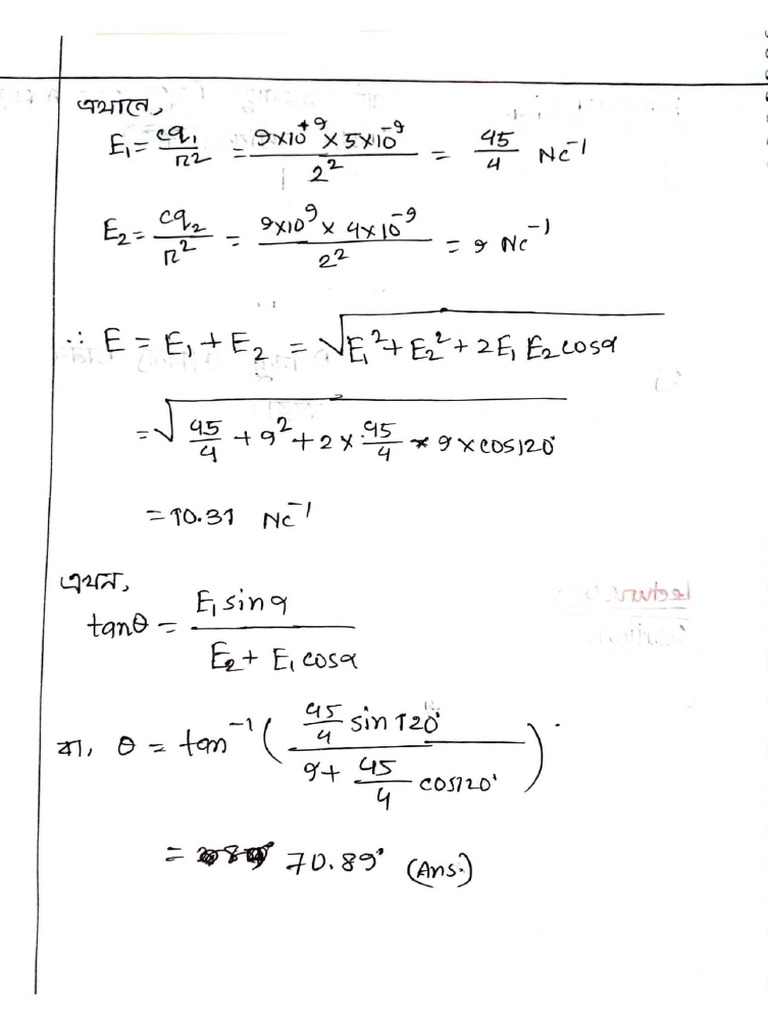 এখানে,
E₁ = cq₁/r² = 9×10⁺⁹ × 5×10⁻⁹ / 2² = 45/4 Nc⁻¹
E₂ = cq₂/r² = 9×10⁹ × 4×10⁻⁹ / 2² = 9 Nc⁻¹
∴ E = E₁ + E₂ = √(E₁² + E₂² + 2E₁ E₂ cosα)
= √(45/4 + 9² + 2 × 45/4 × 9 × cos120°)
= 10.31 Nc⁻¹
এখন,
tanθ = E₁ sinα / E₂ + E₁ cosα
বা, θ = tan⁻¹ ( 45/4 sin 120° / 9 + 45/4 cos120° )
= 70.89° (Ans:)